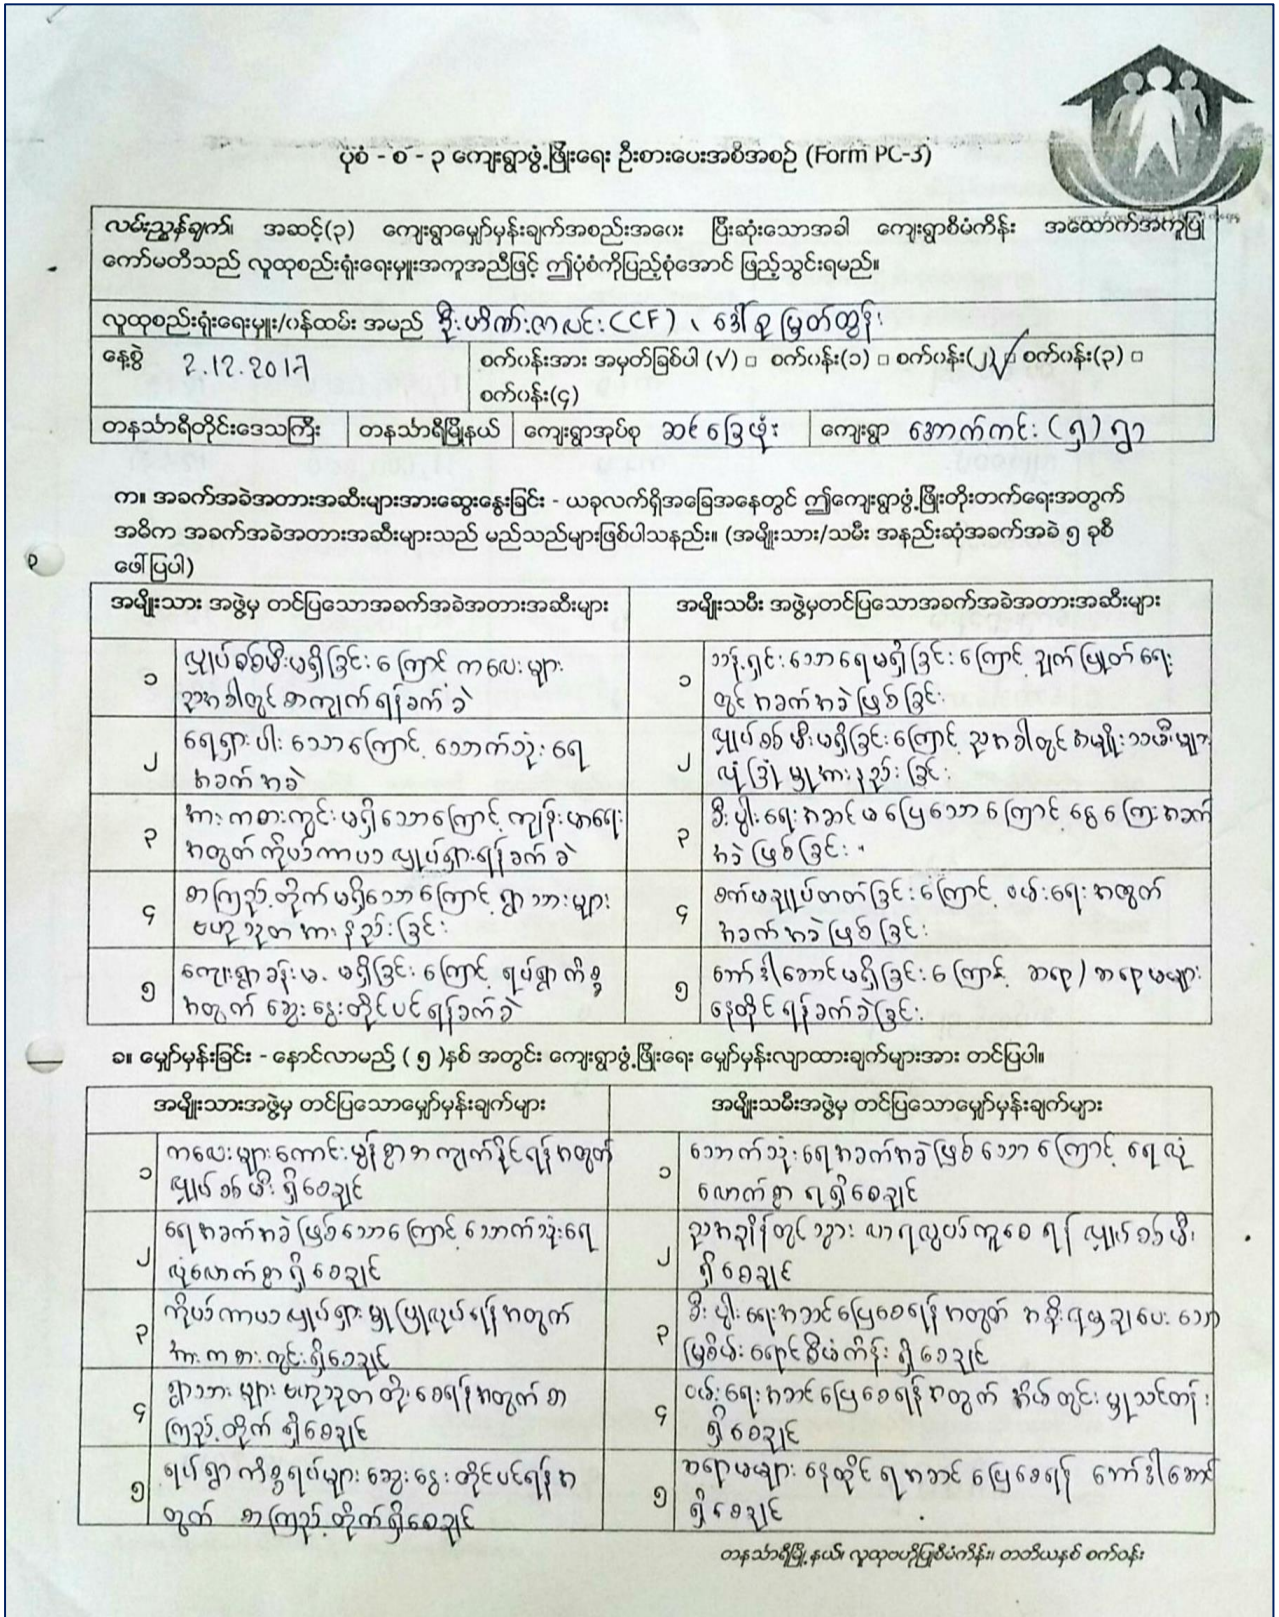 ပုံစံ - စ - ၃ ကျေးရွာဖွံ့ဖြိုးရေး ဦးစားပေးအစီအစဉ် (Form PC-3)
လမ်းညွှန်ချက်။ အဆင့်(၃) ကျေးရွာမျှော်မှန်းချက်အစည်းအဝေး ပြီးဆုံးသောအခါ ကျေးရွာစီမံကိန်း အထောက်အကူပြု
ကော်မတီသည် လူထုစည်းရုံးရေးမှူးအကူအညီဖြင့် ဤပုံစံကိုပြည့်စုံအောင် ဖြည့်သွင်းရမည်။
လူထုစည်းရုံးရေးမှူး/ဝန်ထမ်း အမည် ဦးဟိဏ်းဇာလင်း (CCF) ၊ ဒေါ်စုမြတ်ထွန်း
နေ့စွဲ 2.12.2017
စက်ဝန်းအား အမှတ်ခြစ်ပါ (√) □ စက်ဝန်း(၁) □ စက်ဝန်း(၂) ☑ စက်ဝန်း(၃) □
စက်ဝန်း(၄)
တနင်္သာရီတိုင်းဒေသကြီး တနင်္သာရီမြို့နယ် ကျေးရွာအုပ်စု ဆင်ခြေဖုံး ကျေးရွာ အောက်ကင်း (၅) ရွာ
က။ အခက်အခဲအတားအဆီးများအားဆွေးနွေးခြင်း - ယခုလက်ရှိအခြေအနေတွင် ဤကျေးရွာဖွံ့ဖြိုးတိုးတက်ရေးအတွက်
အဓိက အခက်အခဲအတားအဆီးများသည် မည်သည်များဖြစ်ပါသနည်း။ (အမျိုးသား/သမီး အနည်းဆုံးအခက်အခဲ ၅ ခုစီ
ဖေါ်ပြပါ)
အမျိုးသား အဖွဲ့မှ တင်ပြသောအခက်အခဲအတားအဆီးများ
အမျိုးသမီး အဖွဲ့မှတင်ပြသောအခက်အခဲအတားအဆီးများ
၁ လျှပ်စစ်မီးမရှိခြင်းကြောင့် ကလေးများ
ညအခါတွင် စာကျက်ရန်ခက်ခဲ
၁ သန့်ရှင်းသောရေမရှိခြင်းကြောင့် ချက်ပြုတ်ရေး
တွင် အခက်အခဲဖြစ်ခြင်း
၂ ရေရှားပါးသောကြောင့် သောက်သုံးရေ
အခက်အခဲ
၂ လျှပ်စစ်မီးမရှိခြင်းကြောင့် ညအခါတွင် အမျိုးသမီးများ
လုံခြုံမှုအားနည်းခြင်း
၃ အားကစားကွင်းမရှိသောကြောင့် ကျန်းမာရေး
အတွက်ကိုယ်ကာယလှုပ်ရှားရန်ခက်ခဲ
၃ စီးပွါးရေးအဆင်မပြေသောကြောင့် ငွေကြေးအခက်
အခဲဖြစ်ခြင်း။
၄ စာကြည့်တိုက်မရှိသောကြောင့် ရွာသားများ
ဗဟုသုတအားနည်းခြင်း
၄ စက်မချုပ်တတ်ခြင်းကြောင့် ဝမ်းရေးအတွက်
အခက်အခဲဖြစ်ခြင်း
၅ ကျေးရွာခန်းမ မရှိခြင်းကြောင့် ရပ်ရွာကိစ္စ
အတွက် ဆွေးနွေးတိုင်ပင်ရန်ခက်ခဲ
၅ ဘော်ဒါဆောင်မရှိခြင်းကြောင့် ဆရာ/ဆရာမများ
နေထိုင်ရန်ခက်ခဲခြင်း
ခ။ မျှော်မှန်းခြင်း - နောင်လာမည့် ( ၅ )နှစ် အတွင်း ကျေးရွာဖွံ့ဖြိုးရေး မျှော်မှန်းလျာထားချက်များအား တင်ပြပါ။
အမျိုးသားအဖွဲ့မှ တင်ပြသောမျှော်မှန်းချက်များ
အမျိုးသမီးအဖွဲ့မှ တင်ပြသောမျှော်မှန်းချက်များ
၁ ကလေးများကောင်းမွန်စွာစာကျက်နိုင်ရန်အတွက်
လျှပ်စစ်မီးရှိစေချင်
၁ သောက်သုံးရေအခက်အခဲဖြစ်သောကြောင့် ရေလုံ
လောက်စွာ ရရှိစေချင်
၂ ရေအခက်အခဲဖြစ်သောကြောင့် သောက်သုံးရေ
လုံလောက်စွာရှိစေချင်
၂ ညအချိန်တွင်သွားလာရလွယ်ကူစေရန် လျှပ်စစ်မီး
ရှိစေချင်
၃ ကိုယ်ကာယလှုပ်ရှားမှုပြုလုပ်ရန်အတွက်
အားကစားကွင်းရှိစေချင်
၃ စီးပွါးရေးအဆင်ပြေစေရန်အတွက် အစိုးရမှချပေးသော
မြစိမ်းရောင်စီမံကိန်း ရှိစေချင်
၄ ရွာသားများဗဟုသုတတိုးစေရန်အတွက် စာ
ကြည့်တိုက် ရှိစေချင်
၄ ဝမ်းရေးအဆင်ပြေစေရန်အတွက် အိမ်တွင်းမှုသင်တန်း
ရှိစေချင်
၅ ရပ်ရွာကိစ္စရပ်များဆွေးနွေးတိုင်ပင်ရန်အ
တွက် စာကြည့်တိုက်ရှိစေချင်
၅ ဆရာမများနေထိုင်ရအဆင်ပြေစေရန် ဘော်ဒါဆောင်
ရှိစေချင်
တနင်္သာရီမြို့နယ်၊ လူထုဗဟိုပြုစီမံကိန်း၊ တတိယနှစ် စက်ဝန်း